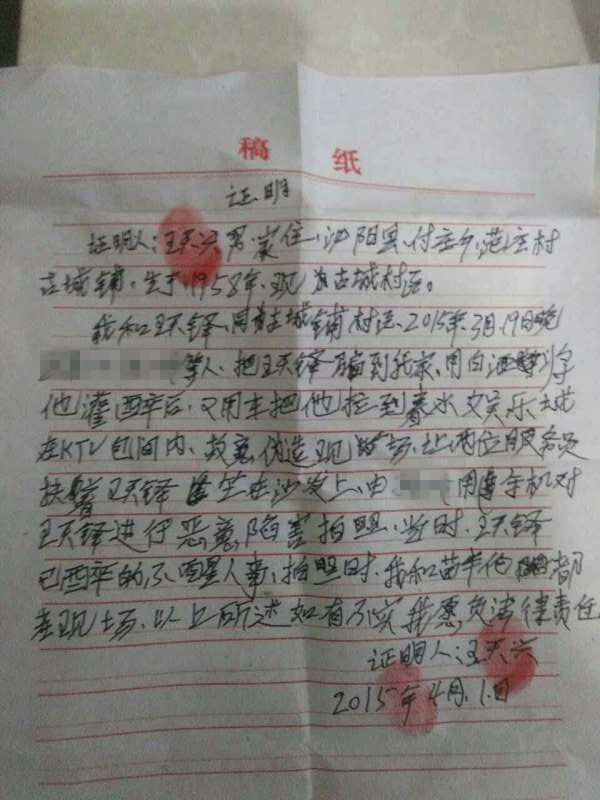 稿 纸
证明
证明人:王天兴,男,家住,泌阳县,付庄乡,范庄村
古城铺,生于,1958年,现为古城村民。
我和王天铎,同为古城铺村民,2015年,3月,19日晚
等人,把王天铎骗到我家,用白酒
他灌醉后,又用车把他拉到春水文娱乐城
在KTV包间内,故意伪造现场,让两位服务员
扶着王天铎坐在沙发上,由 用手机对
王天铎进行恶意陷害拍照,当时,王天铎
已酉卒的不醒人事,拍照时,我和苗 他 都
在现场,以上所述如有不实我愿负法律责任
证明人:王天兴
2015年4月,1日